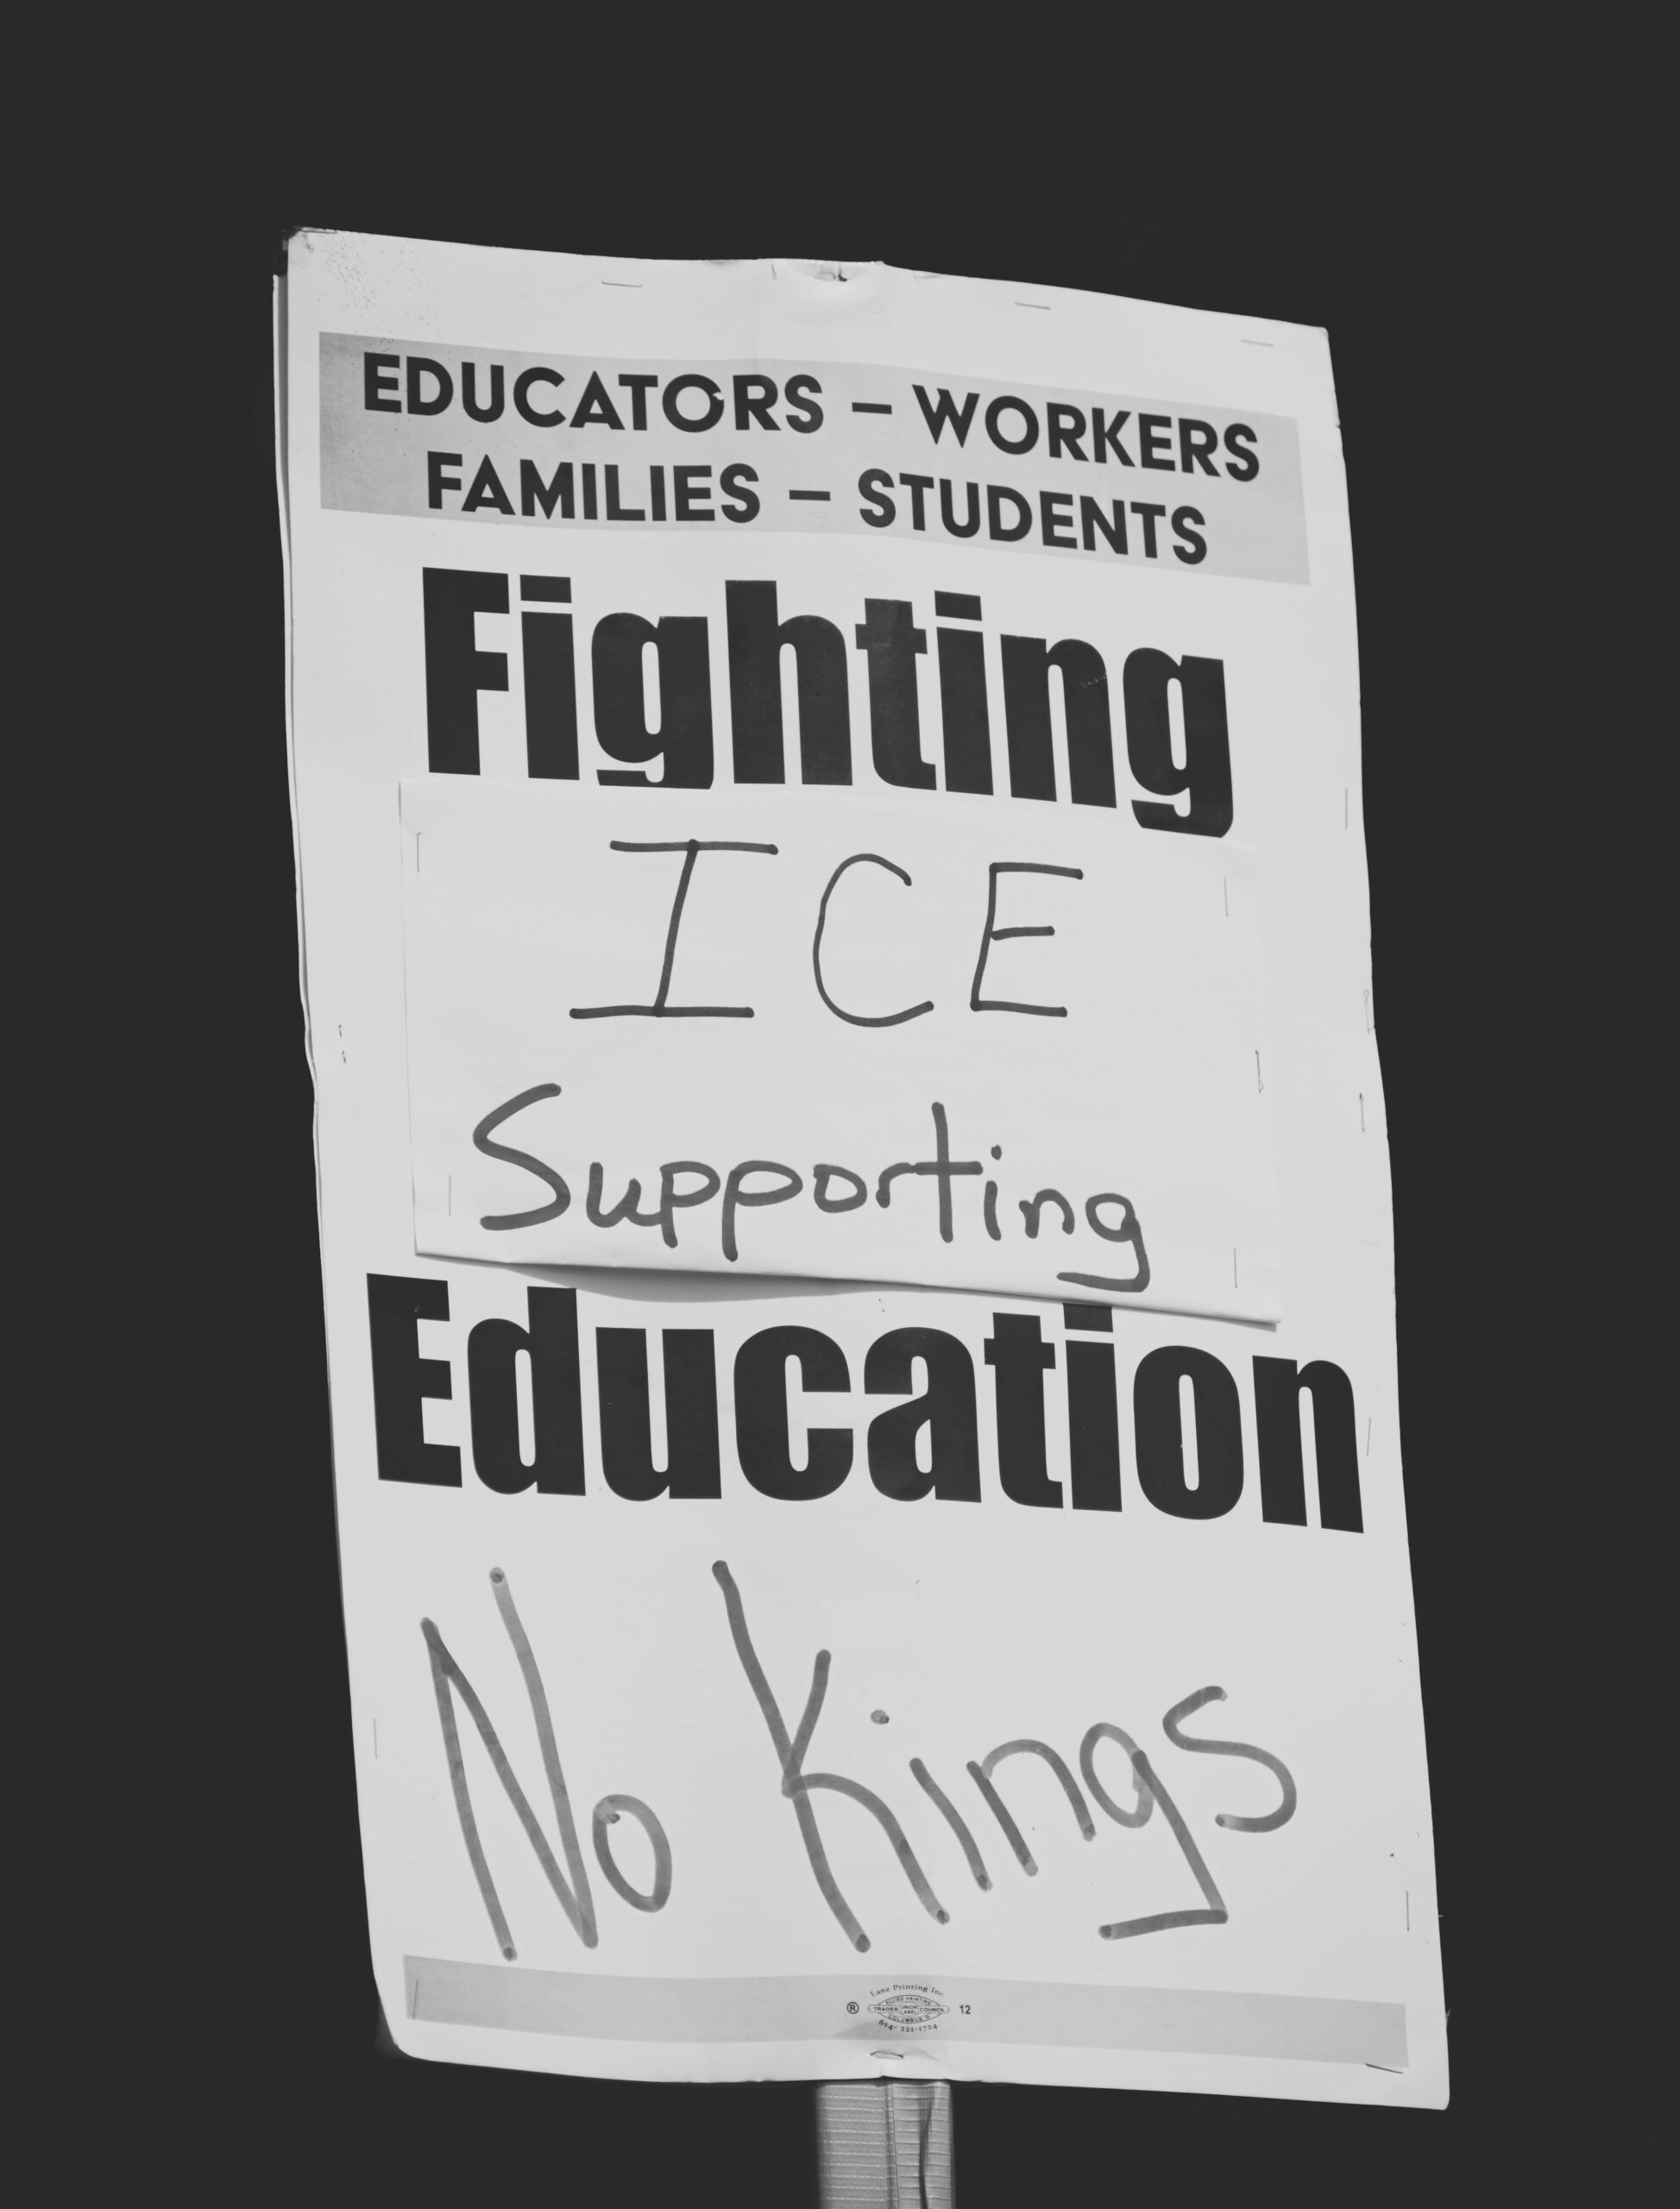 EDUCATORS – WORKERS
FAMILIES – STUDENTS
Fighting
ICE
Supporting
Education
No Kings
Lanz Printing Inc.
® ALLIED PRINTING 12
TRADES UNION LABEL COUNCIL
COLUMBUS O.
614-221-1724